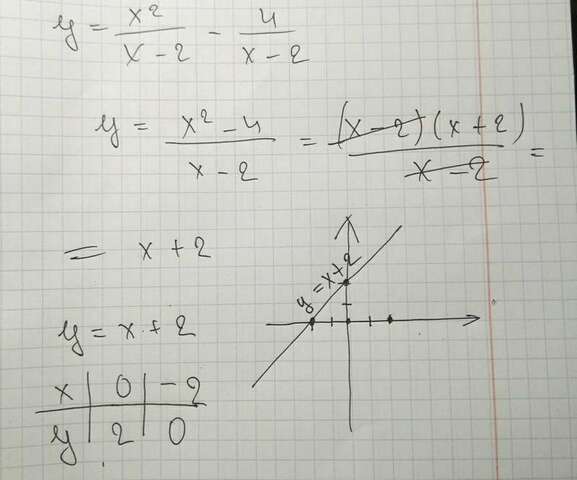 y = x²/(x - 2) - 4/(x - 2)
y = (x² - 4)/(x - 2) = (x - 2)(x + 2)/(x - 2) =
= x + 2
y = x + 2
y = x + 2
x | 0 | -2
y | 2 | 0